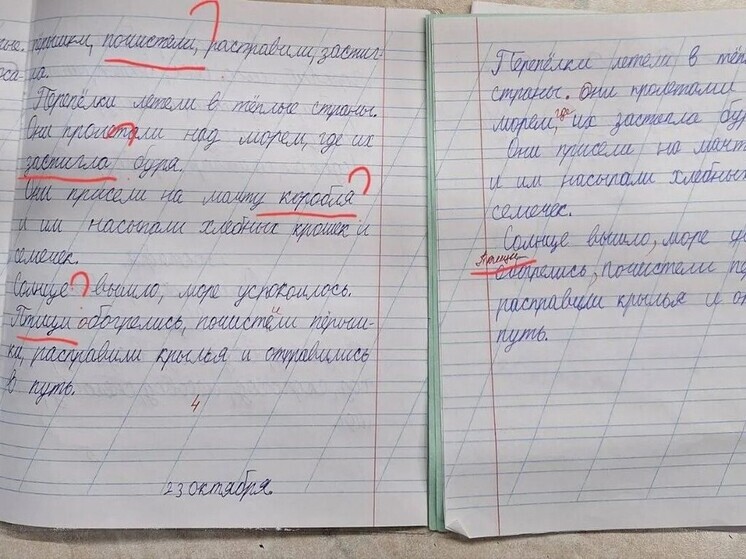 пёрышки, почистели, расправили, застиг-
ла.
Перепёлки летели в тёплые страны.
Они пролетали над морем, где их
застигла буря.
Они присели на мачту коробля
и им насыпали хлебных крошек и
семечек.
Солнце вышло, море успокоилось.
Птици обогрелись, почистели пёрыш-
ки, расправили крылья и отправились
в путь.
4
23 октября.
Перепёлки летели в тёп
страны. Они пролетали
морем, где их застегла бу
Они присели на мачт
и им насыпали хлебных
семечек.
Солнце вышло, море ус
Птици
обогрелись, почистели пе
расправили крылья и от
путь.